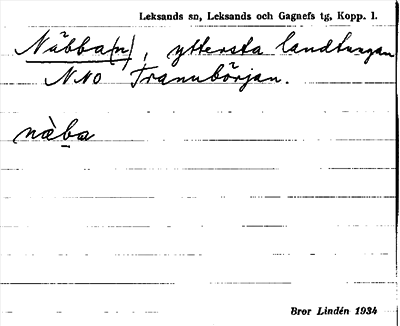 Leksands sn, Leksands och Gagnefs tg, Kopp. l.
Näbba(n), yttersta landtungan
NNO Trannbörjan.
nàba
Bror Lindén 1934